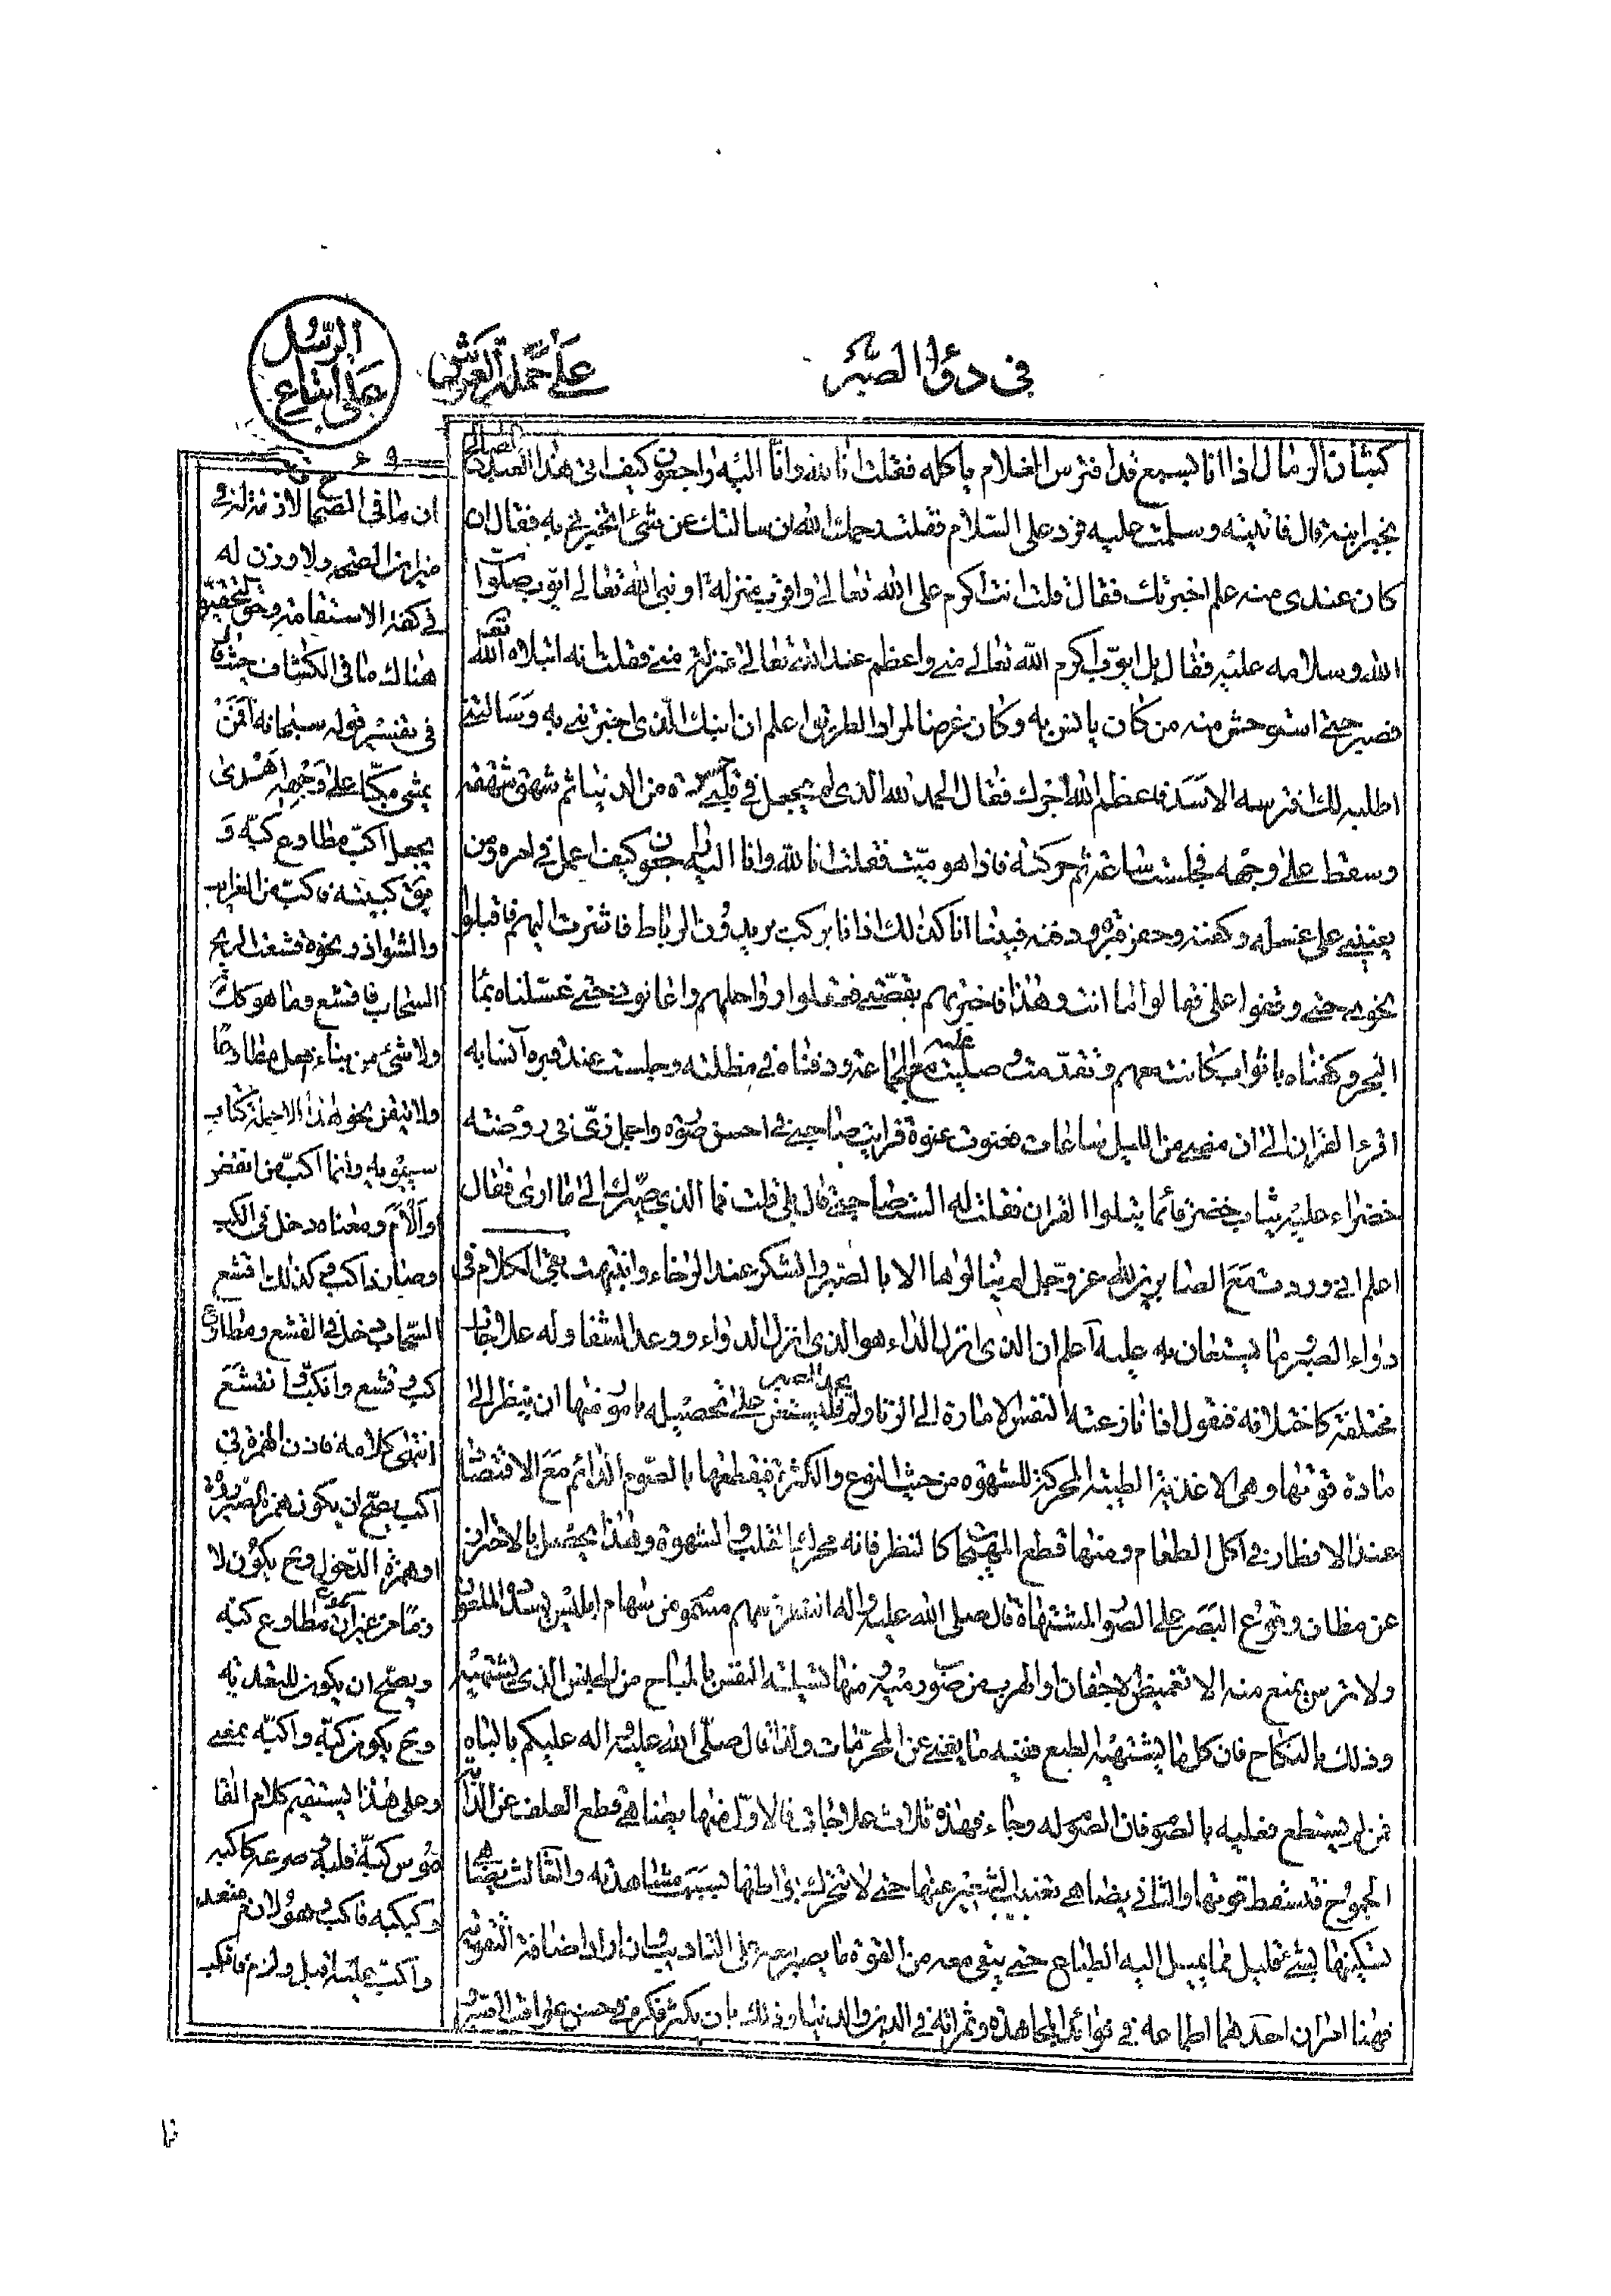 في دواء الصبر
على حملة العرش
الرسل
على اتباع
كثبان الرمال اذا انا بسبع قد افترس الغلام ياكله فقلت انا لله وانا اليه راجعون كيف اتى هذا العبد الصالح
بخبر ابنه قال فاتيته وسلمت عليه فرد على السلام فقلت رحمك الله ان سالتك عن شئ اتخبرني به فقال ان
كان عندى منه علم اخبرتك فقال قلت انت اكرم على الله تعالى واقرب منزلة او نبى الله تعالى ايوب صلوات
الله وسلامه عليه فقال بل ايوب اكرم على الله تعالى منى واعظم عند الله تعالى منزلة منى فقلت انه ابتلاه الله تعالى
فصبر حتى استوحش منه من كان يانس به وكان غرضا لمرار الطريق اعلم ان ابنك الذى اخبرتنى به وسالتنى
اطلبه لك افترسه الاسد فاعظم الله اجرك فقال الحمد لله الذى لم يجعل في قلبى حسرة من الدنيا ثم شهق شهقة
وسقط على وجهه فجلست ساعة ثم حركته فاذا هو ميت فقلت انا لله وانا اليه راجعون كيف اعمل في امره ومن
يعينني على غسله وكفنه وحفر قبره ودفنه فبينا انا كذلك اذا انا بركب يريدون الرباط فاشرت اليهم فاقبلوا
نحوى حتى وقفوا على فقالوا ما انت وهذا فاخبرتهم بقصتى فعقلوا رواحلهم واعانونى حتى غسلناه بماء
البحر وكفناه باثواب كانت معهم وتقدمت وصليت عليه مع الجماعة ودفناه في مظلته وجلست عند قبره آنسا به
اقرء القران الى ان مضى من الليل ساعات فغفوت غفوة فرايت صاحبى في احسن صورة واجمل زى في روضة
خضراء عليه ثياب خضر قائما يتلوا القران فقلت له الست صاحبى قال بلى قلت فما الذى صيرك الى ما ارى فقال
اعلم انى وردت مع الصابرين لله عز وجل لم ينالوها الا بالصبر والشكر عند الرخاء وانتبهت بقى الكلام في
دواء الصبر وما يستعان به عليه اعلم ان الذى انزل الداء هو الذى انزل الدواء ووعد الشفا وله علاجات
مختلفة كاختلافه فنقول اذا نازعته النفس الامارة الى الزنا ولم يجد الصبر فليستعن على تحصيله بامور منها ان ينظر الى
مادة قوتها وهى الاغذية الطيبة المحركة للشهوة من حيث النوع والكثرة فيقطعها بالصوم الدائم مع الاقتصاد
عند الافطار في اكل الطعام ومنها قطع المهيجات كالنظر فانه محرك القلب والشهوة وهذا يحصل بالاحتراز
عن مظان وقوع البصر على الصور المشتهاة قال صلى الله عليه واله النظر سهم مسموم من سهام ابليس يسدده الملعون
ولا ترس يمنع منه الا تغميض الاجفان او الهرب من صوب رميه ومنها تسلية النفس بالمباح من الجنس الذى تشتهيه
وذلك بالنكاح فان كل ما يشتهيه الطبع ففيه ما يغنى عن المحرمات ولذا قال صلى الله عليه واله عليكم بالباه
فمن لم يستطع فعليه بالصوم فان الصوم له وجاء فهذه ثلاث علاجات فالاول منها يضاهى قطع العلف عن الدابة
الجموح فتسقط قوتها والثانى يضاهى تغييب الشعير عنها حتى لا تتحرك بواطنها بسبب مشاهدته والثالث يضاهى
تسكينها بشئ قليل مما يميل اليه الطباع حتى يبقى معه من القوة ما يصبر معه على التاديب وان اراد اضافة التقوية
فهنا امران احدهما اطماعه في فوائد المجاهدة وثمراته في الدين والدنيا وذلك بان يكثر فكره في حسن عواقب الصبر
ان ما في الصحاح لا ذرة له في
ميزان الصحة ولا وزن له
في كفة الاستقامة وحق التحقيق
هناك ما في الكشاف حيث قال
في تفسير قوله سبحانه افمن
يمشى مكبا على وجهه اهدى
يجعل اكب مطاوع كبه و
يق كببته فاكب من الغرائب
والشواذ ونحوه قشعت الريح
السحاب فاقشع وما هو كك
ولا شئ من بناء افعل مطاوعا
ولا يتقن نحو هذا الا حملة كتاب
سيبويه وانما اكب من انفض
والأم ومعناه دخل في الكب
وصار ذا كب وكذلك اقشع
السحاب دخل في القشع ومطاوع
كب وقشع وانكب وانقشع
انتهى كلامه فاذن الهمزة في
اكب يصح ان يكون همزة الصيرورة
او همزة الدخول وح يكون لا
زما من غير ان يكون مطاوع كبه
ويصح ان يكون للتعدية
وح يكون كبه واكبه بمعنى
وعلى هذا يستقيم كلام القا
موس كبه قلبه وصرعه كاكبه
وكبكبه فاكب وهو لازم متعد
واكب عليه اقبل ولزم فانكب